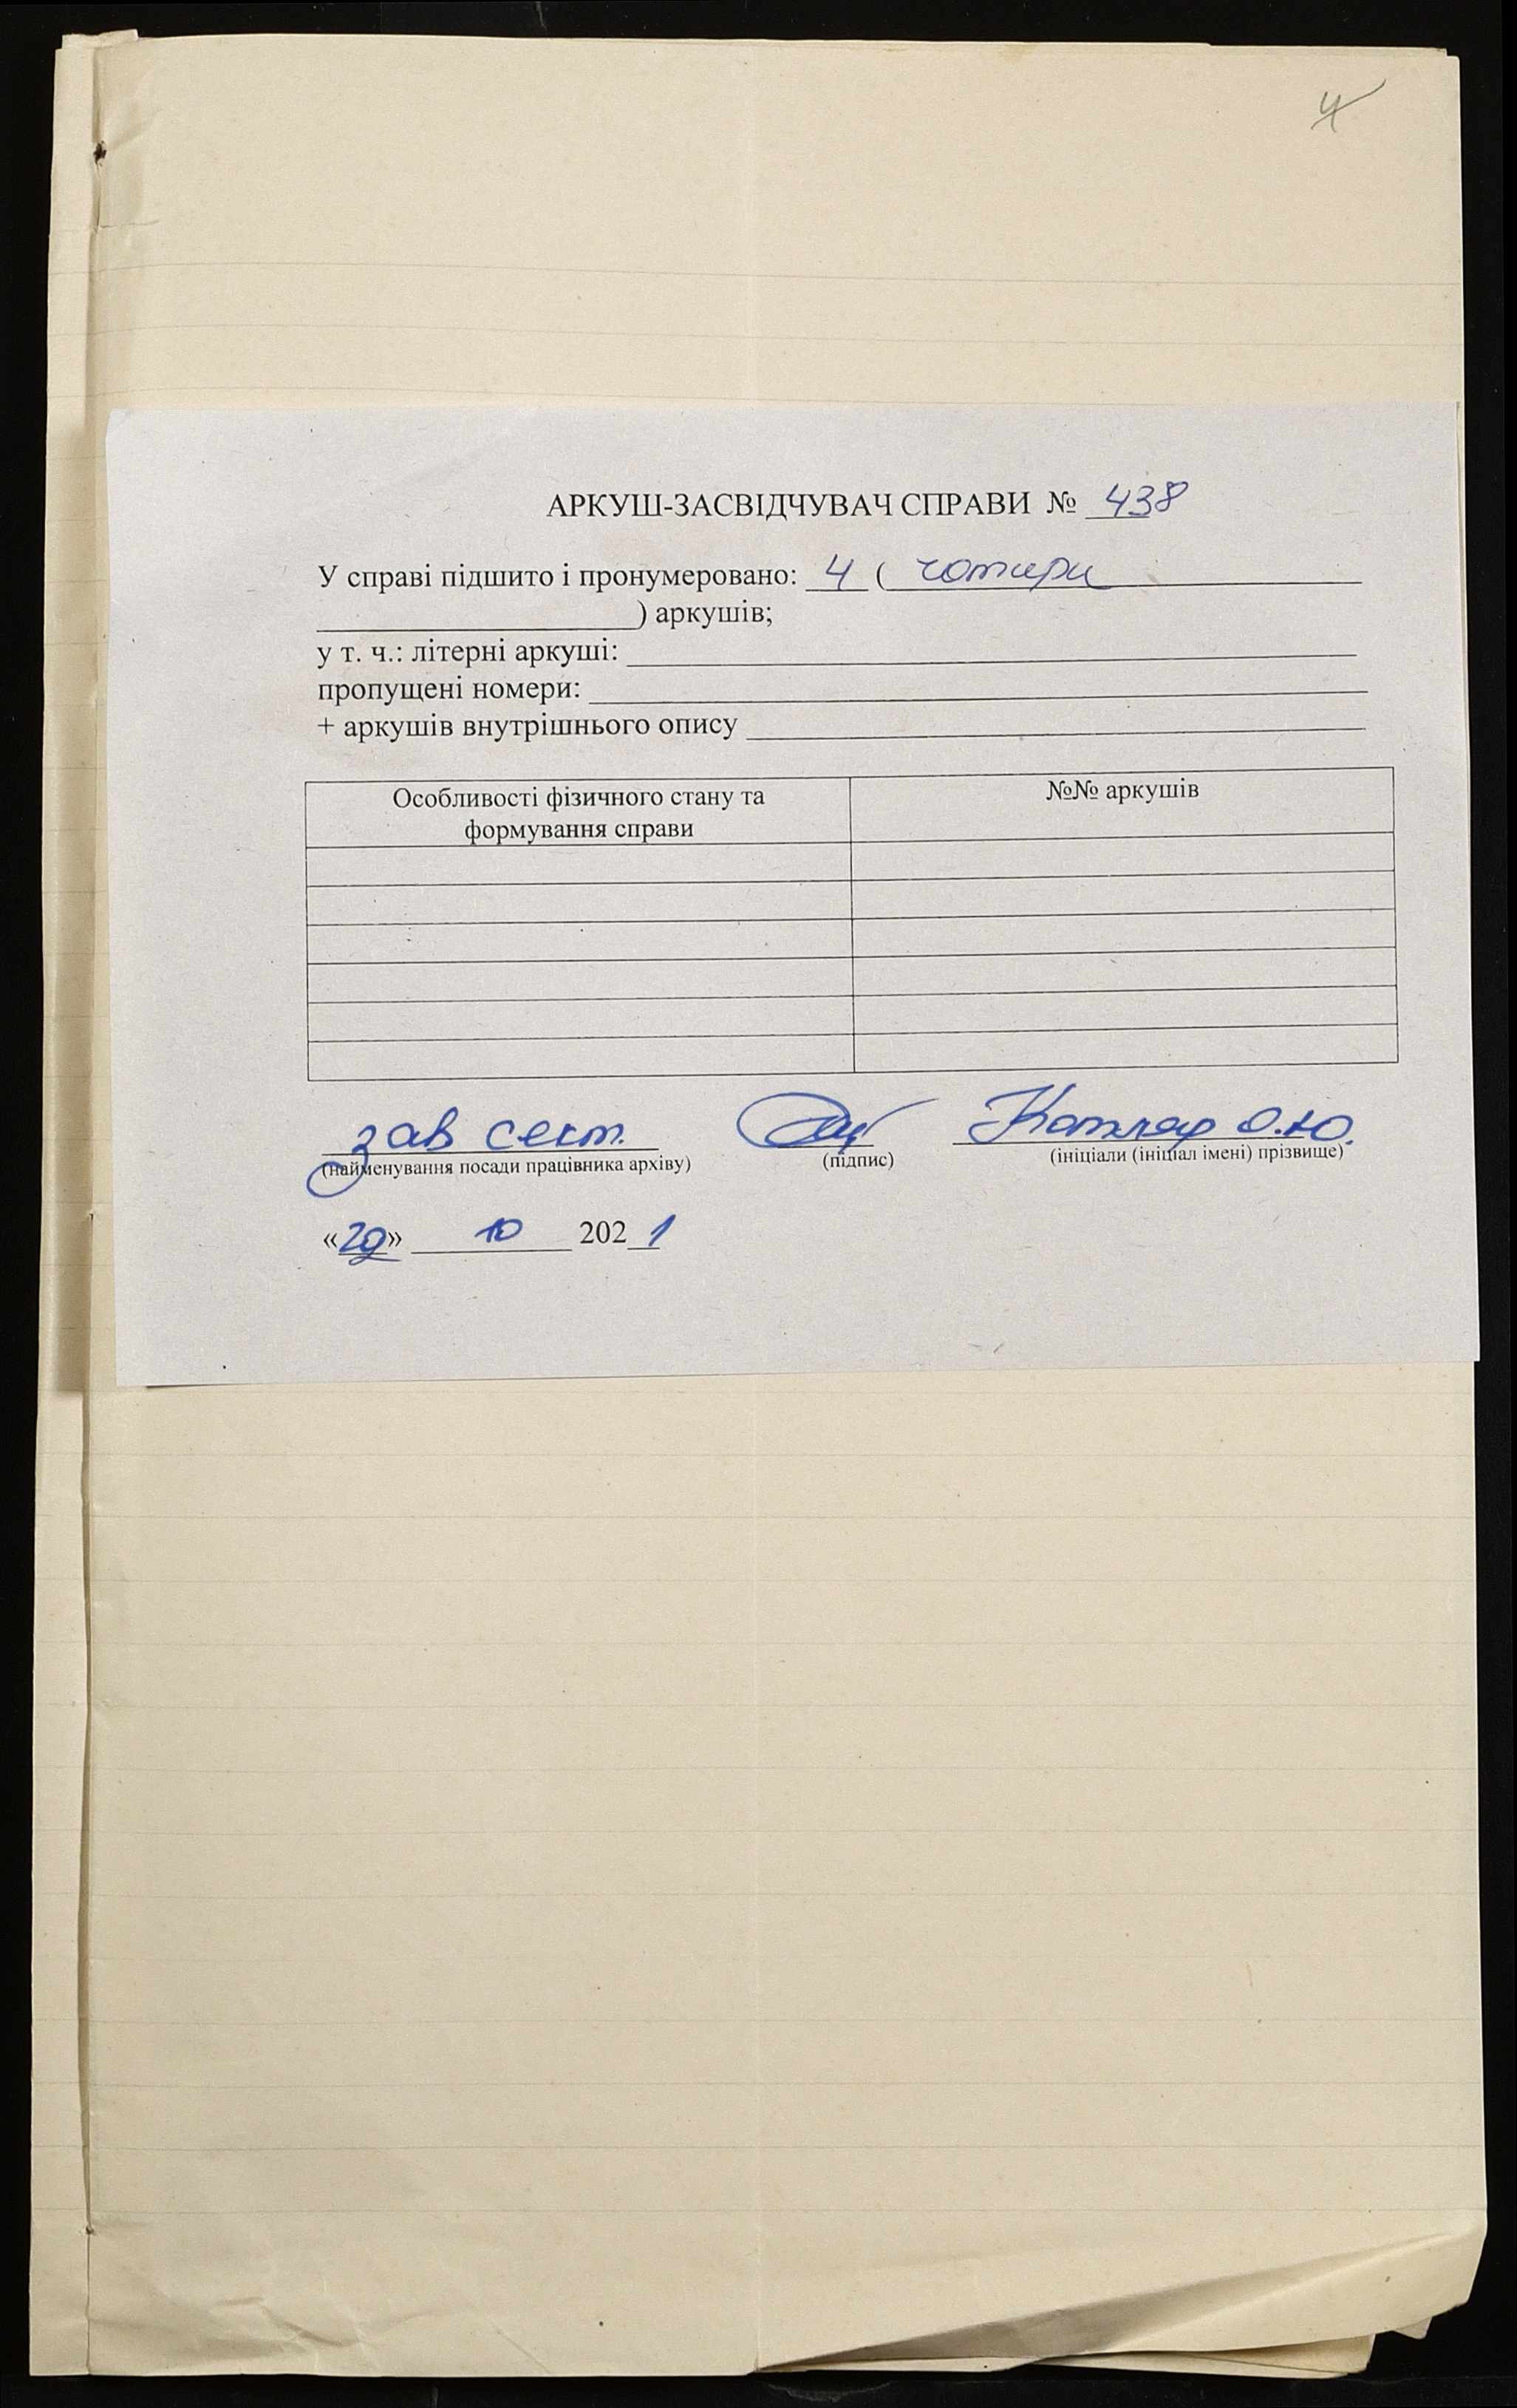 4
АРКУШ-ЗАСВІДЧУВАЧ СПРАВИ № 438
У справі підшито і пронумеровано: 4 ( чотири
) аркушів;
у т. ч.: літерні аркуші:
пропущені номери:
+ аркушів внутрішнього опису
Особливості фізичного стану та формування справи	№№ аркушів
зав сект. Котляр О.Ю.
(найменування посади працівника архіву) (підпис) (ініціали (ініціал імені) прізвище)
«29» 10 2021